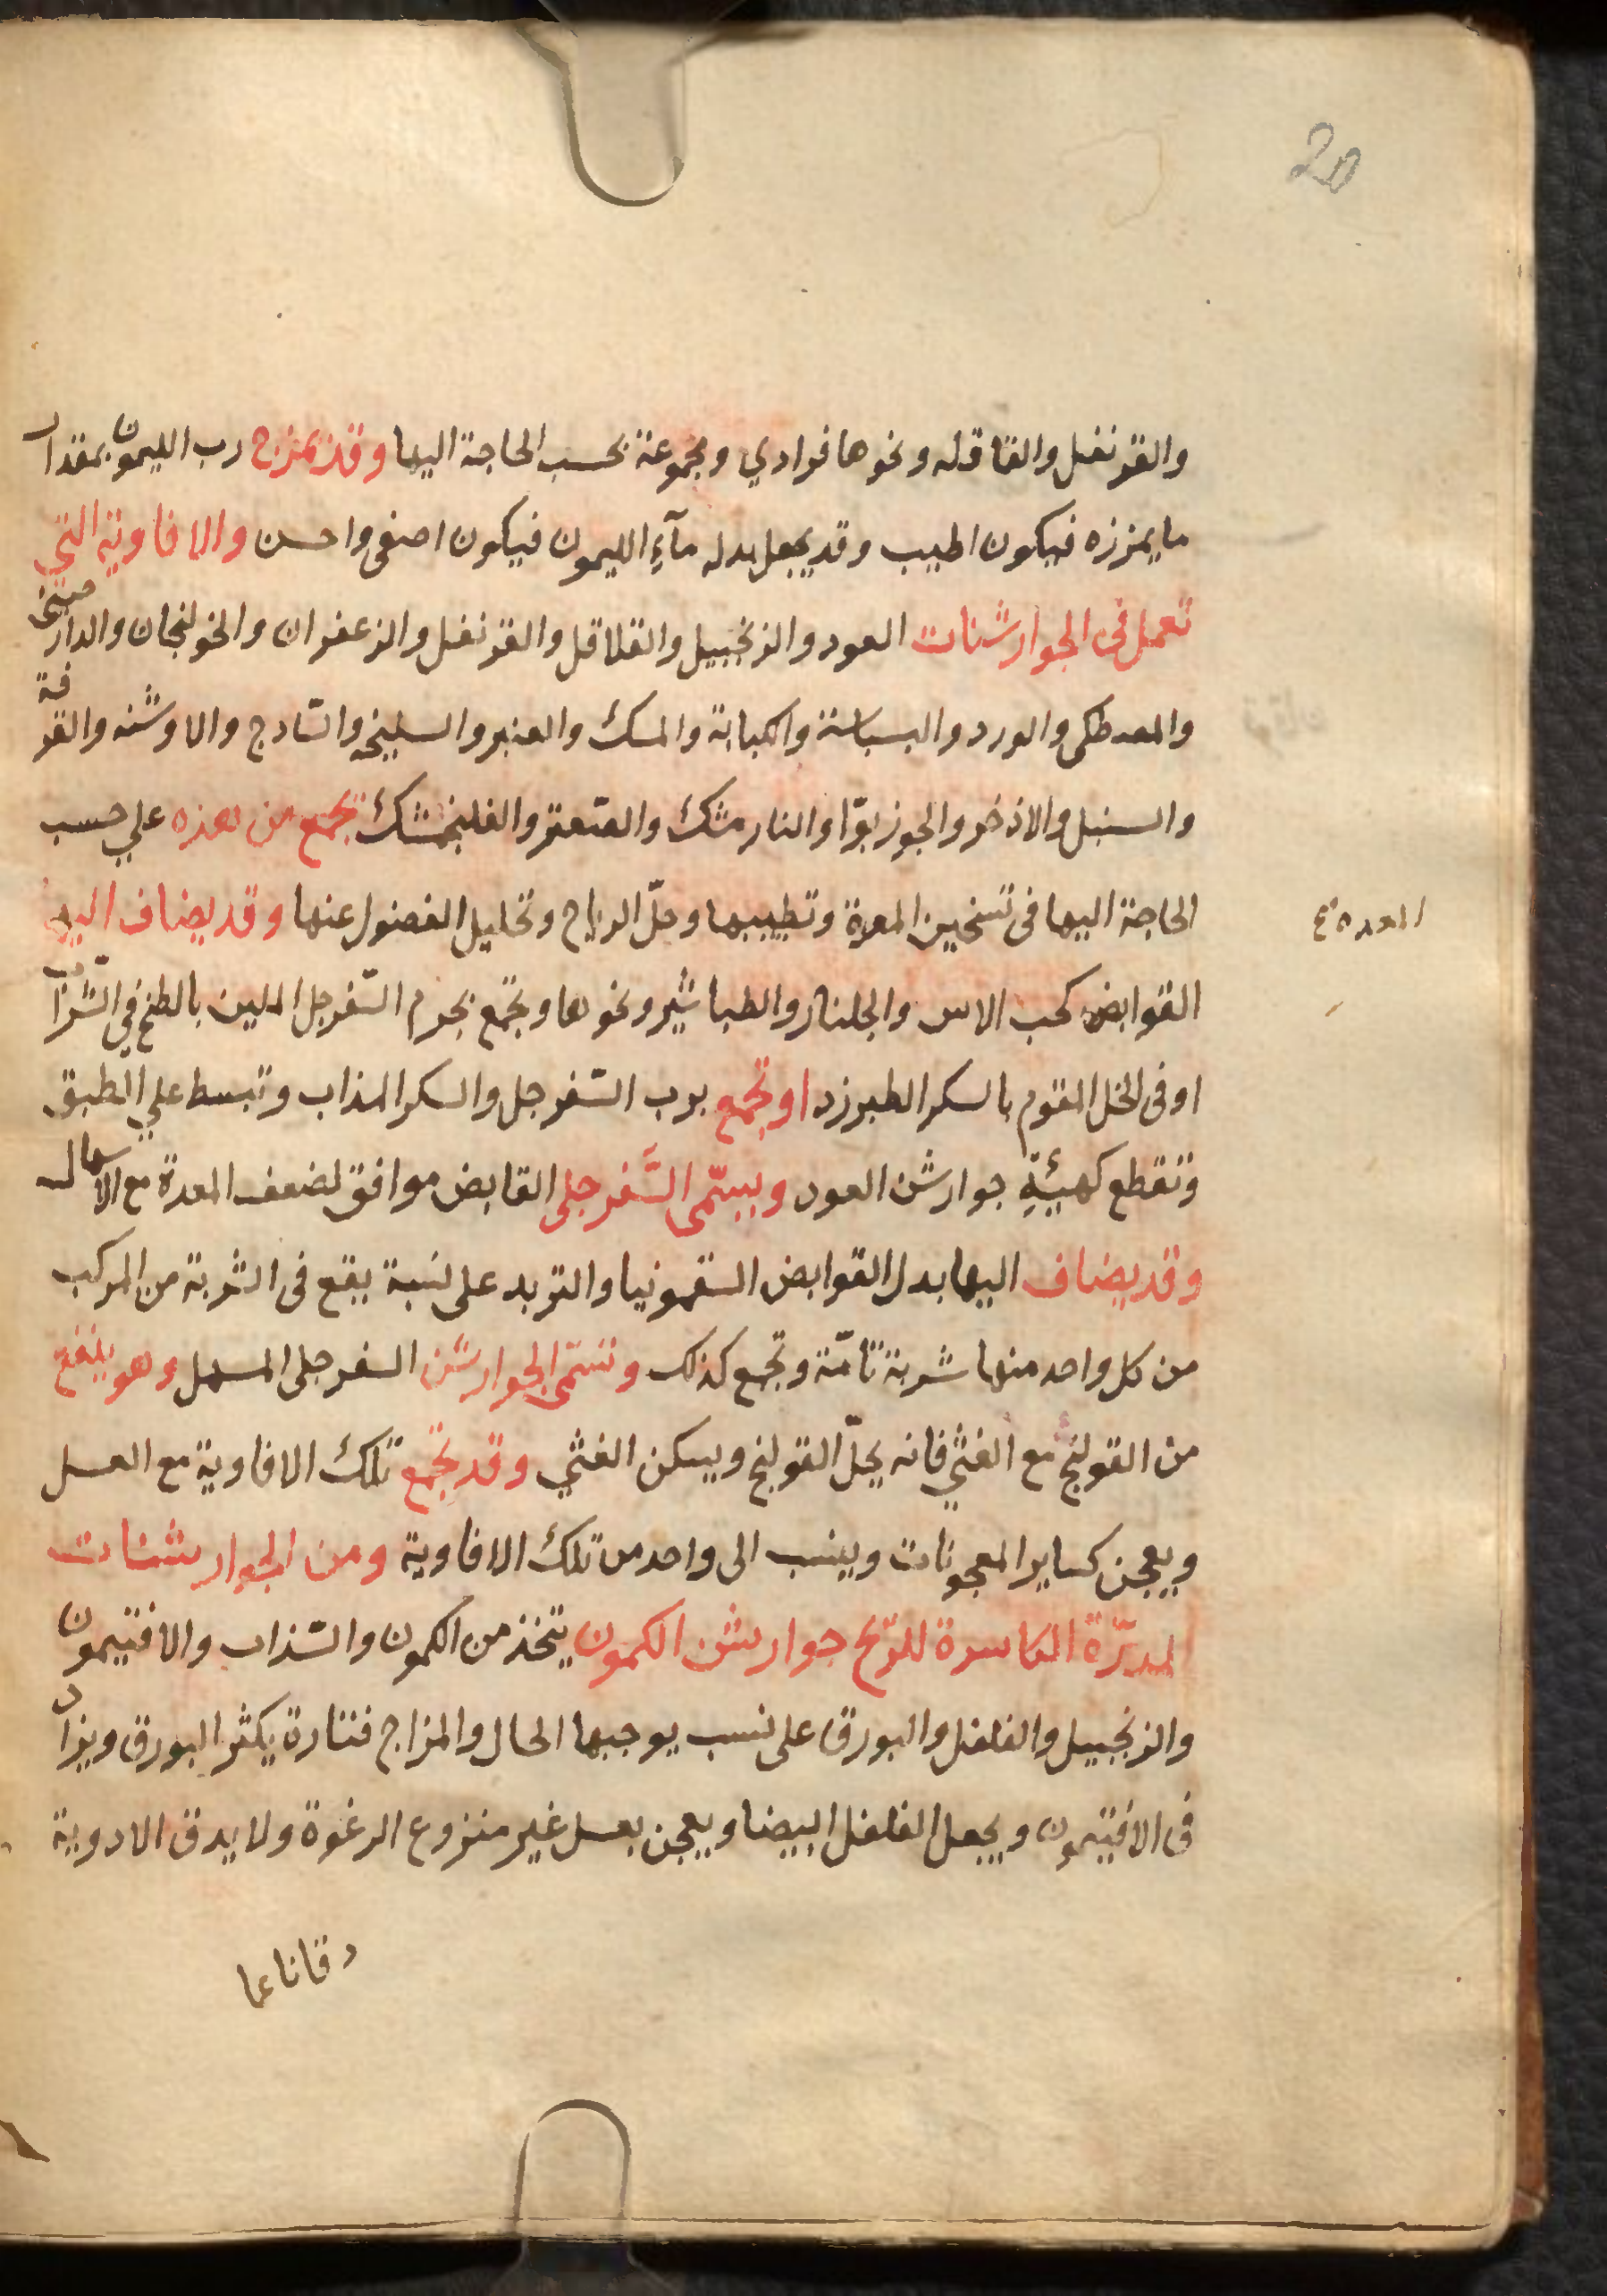 20
والقرنفل والقاقله ونحوها فرادي ومجموعة بحسب الحاجة اليها وقد يمزج رب الليمون بمقدار
ما يمززه فيكون اطيب وقد يجعل بدله مآء الليمون فيكون اصفى واحسن والافاوية التي
تعمل في الجوارشنات العود والزنجبيل والقلاقل والقرنفل والزعفران والخولنجان والدارصيني
والمصطكى والورد والبسباسة والكبابة والمسك والعنبر والسليخه والسّادج والاوشنه والقرفة
والسنبل والاذخر والجوزبوّا والنارمشك والصّعتر والفلنجمشك تجمع من هذه علي حسب
الحاجة اليها في تسخين المعدة وتطييبها وحلّ الرياح وتحليل الفضول عنها وقد يضاف اليها
المعدة
القوابض كحب الاس والجلنار والطباشير ونحوها وتجمع بجرم السّفرجل الملين بالطبخ في الشّراب
او في الخل المقوم بالسكر الطبرزد او تجمع برب السّفرجل والسكر المذاب وتبسط علي الطبق
وتقطع كهيئة جوارشن العود ويسمّى السَّفرجلي القابض موافق لضعف المعدة مع الاسهال
وقد يضاف اليها بدل القوابض السقمونيا والتربد على نسبة يقع في الشربة من المركب
من كل واحد منها شربة تامّة وتجمع كذلك وتسمّى الجوارشن السفرجلي المسهل وهو ينفع
من القولنج مع الغثي فانه يحلّ القولنج ويسكن الغثي وقد تجمع تلك الافاوية مع العسل
ويعجن كساير المعجونات وينسب الى واحد من تلك الافاوية ومن الجوارشنات
المدرّة الكاسرة للرّيح جوارشن الكمون يتخذ من الكمون والسّذاب والافتيمون
والزنجبيل والفلفل والبورق على نسب يوجبها الحال والمزاج فتارة يكثر البورق ويزاد
في الافتيمون ويجعل الفلفل ابيضا ويعجن بعسل غير منزوع الرغوة ولا يدق الادوية
دقا ناعما